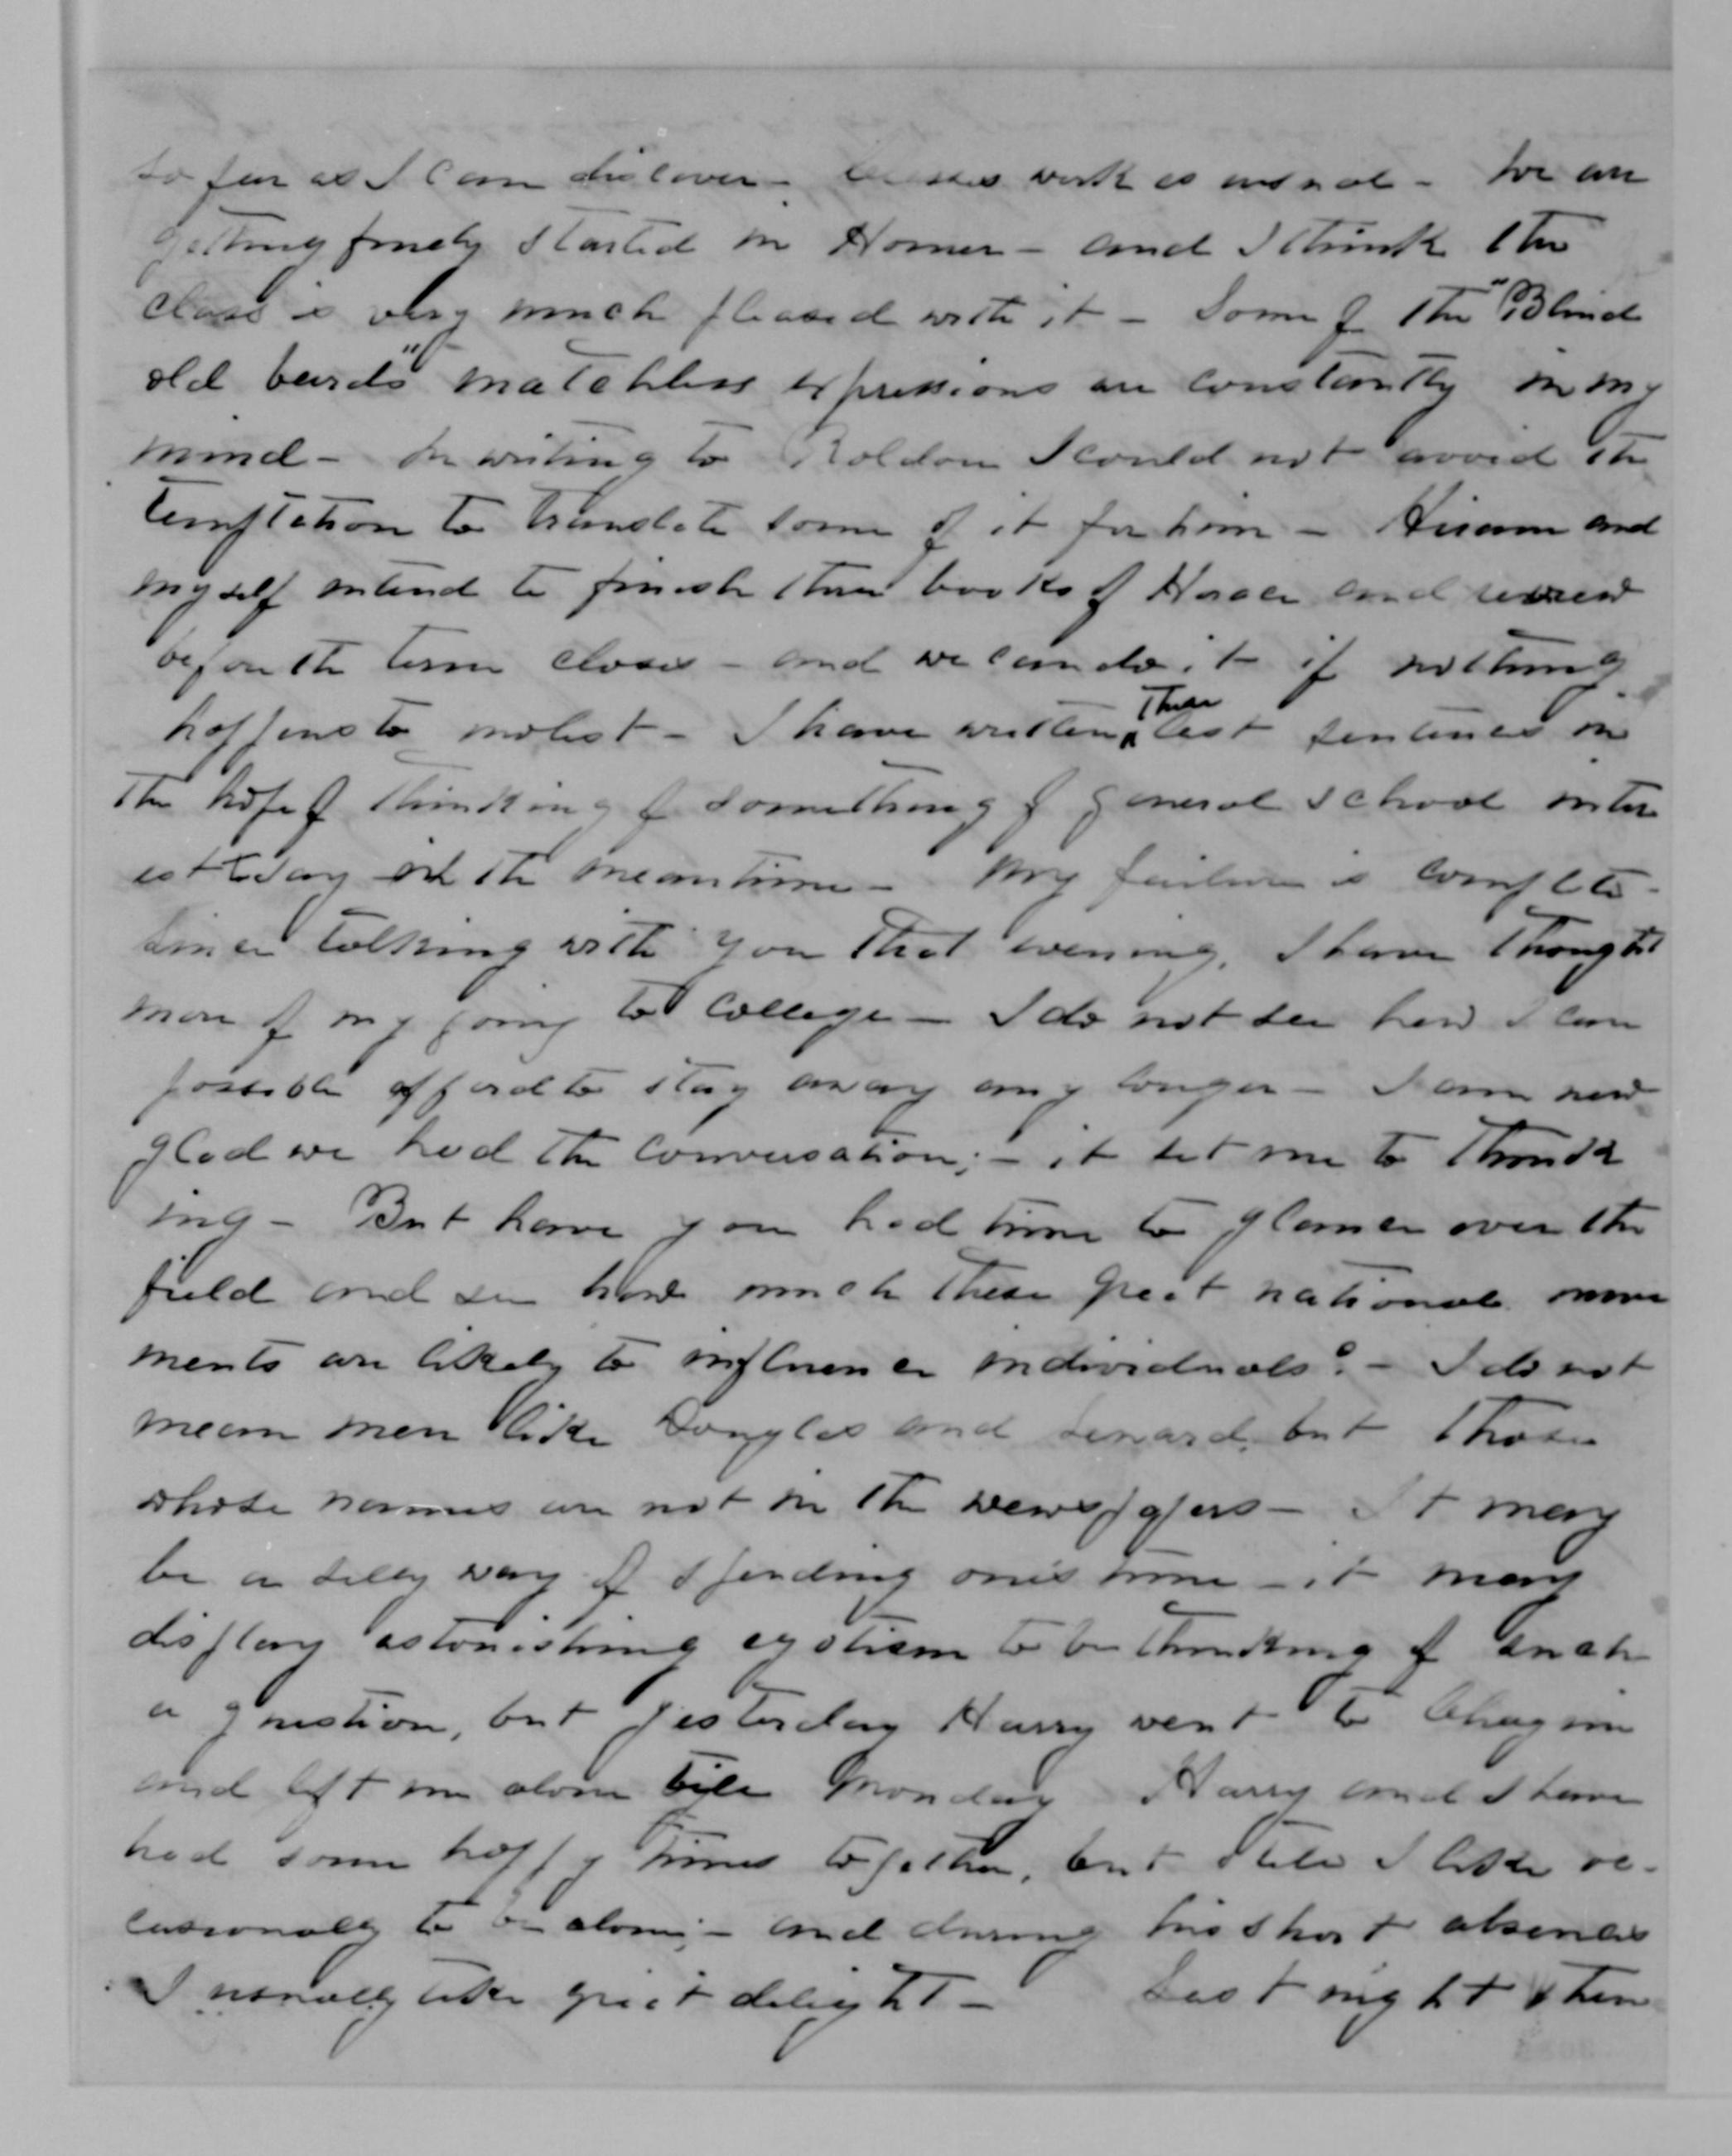 so far as I can discover - Classes work as usual - We are
getting finely started in Homer - and I think the
class is very much pleased with it - Some of the "Blind
old bards" matchless expressions are constantly in my
mind - In writing to Roldon I could not avoid the
temptation to translate some of it for him - Hiram and
myself intend to finish three books of Horace and review
before the term closes - and we can do it if nothing
happens to molest - I have written these last sentences in
the hope of thinking of something of general school inter
est to say in the meantime - My failure is complete -
Since talking with you that evening, I have thought
more of my going to college - I do not see how I can
possible afford to stay away any longer - I am now
glad we had the conversation; - it set me to think
ing - But have you had time to glance over the
field and see how much these great national move
ments are likely to influence individuals? - I do not
mean men like Douglas and Seward, but those
whose names are not in the newspapers - It may
be a silly way of spending one's time - it may
display astonishing egotism to be thinking of such
a question, but yesterday Harry went to Chagrin
and left me alone till Monday Harry and I have
had some happy times together, but still I like oc-
casionally to be alone; - and during his short absences
I usually take great delight - Last night then